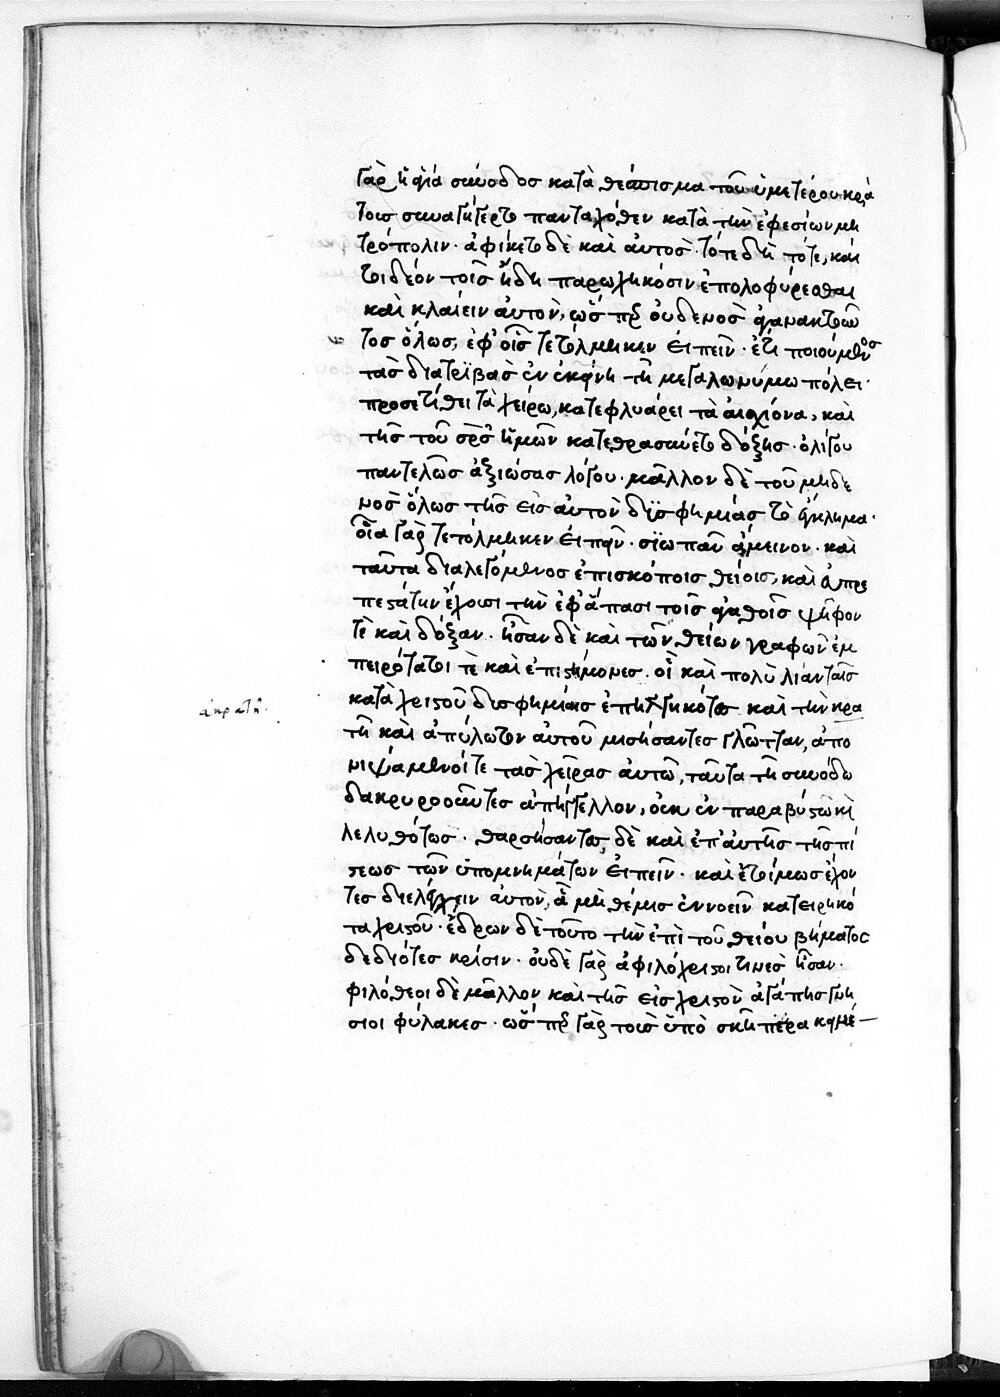 γὰρ ἡ ἁγία σύνοδος κατὰ θέσπισμα τοῦ ὑμετέρου κρά
τους συναγήγερτο πανταχόθεν κατὰ τὴν ἐφεσίων μη
τρόπολιν· ἀφίκετο δὲ καὶ αὐτοσ· τότε δὴ τότε, καί
τοι δέον τοῖς ἤδη παρῳχηκόσιν ἐπολοφύρεσθαι
καὶ κλαίειν αὐτὸν, ὥσπερ οὐδενὸς ἀγανακτοῦν
τος ὅλως, ἐφ' οἷς τετόλμηκεν εἰπεῖν· ἔτι ποιούμενος
τὰς διατριβὰς ἐν ἐκείνῃ τῇ μεγαλωνύμω πόλει·
προσετίθει τὰ χείρω, κατεφλυάρει τὰ αἰσχίονα, καὶ
τῆς τοῦ σρσ ἡμῶν κατεθρασύνετο δόξης· ὀλίγου
παντελῶς ἀξιώσας λόγου· μᾶλλον δὲ τοῦ μηδε
νὸς ὅλως τῆς εἰς αὐτὸν δυσφημίας τὸ ἔγκλημα·
οἷα γὰρ τετόλμηκεν εἰπεῖν· σιωπᾶν ἄμεινον· καὶ
ταῦτα διαλεγόμενος ἐπισκόποις θείοις, καὶ εὐπρε
πεστάτην ἔχουσι τὴν ἐφ' ἅπασι τοῖς ἀγαθοῖς ψῆφον
τὲ καὶ δόξαν· ἦσαν δὲ καὶ τῶν θείων γραφῶν ἐμ
πειρότατοι τὲ καὶ ἐπιστήμονες· οἳ καὶ πολὺ λίαν ταῖς
κατὰ χριστοῦ δυσφημίαις ἐπηχθηκότες καὶ τὴν κρα
τῆ καὶ ἀπύλωτον αὐτοῦ μισήσαντες γλῶτταν, ἀπο
νιψάμενοί τε τὰς χεῖρας αὐτῶ, ταῦτα τῇ συνόδω
δακρυρροοῦντες ἀπήγγελλον, οὐκ ἐν παραβύστω κὶ
λεληθότως· θαρσήσαντες δὲ καὶ ἐπ' αὐτῆς τῆς πί
στεως τῶν ὑπομνημάτων εἰπεῖν· καὶ ἑτοίμως ἔχον
τες διελέγχειν αὐτὸν, ἃ μὴ θέμις ἐννοεῖν κατειρηκό
τα χριστοῦ· ἔδρων δὲ τοῦτο τὴν ἐπὶ τοῦ θείου βήματος
δεδιότες κρίσιν· οὐδὲ γὰρ ἀφιλόχριστοι τινὲς ἦσαν·
φιλόθεοι δὲ μᾶλλον καὶ τῆς εἰς χριστὸν ἀγάπης γνή
σιοι φύλακες· ὥσπερ γὰρ τοῖς ὑπὸ σκῆπτρα κειμέ
ἀκρατῆ·